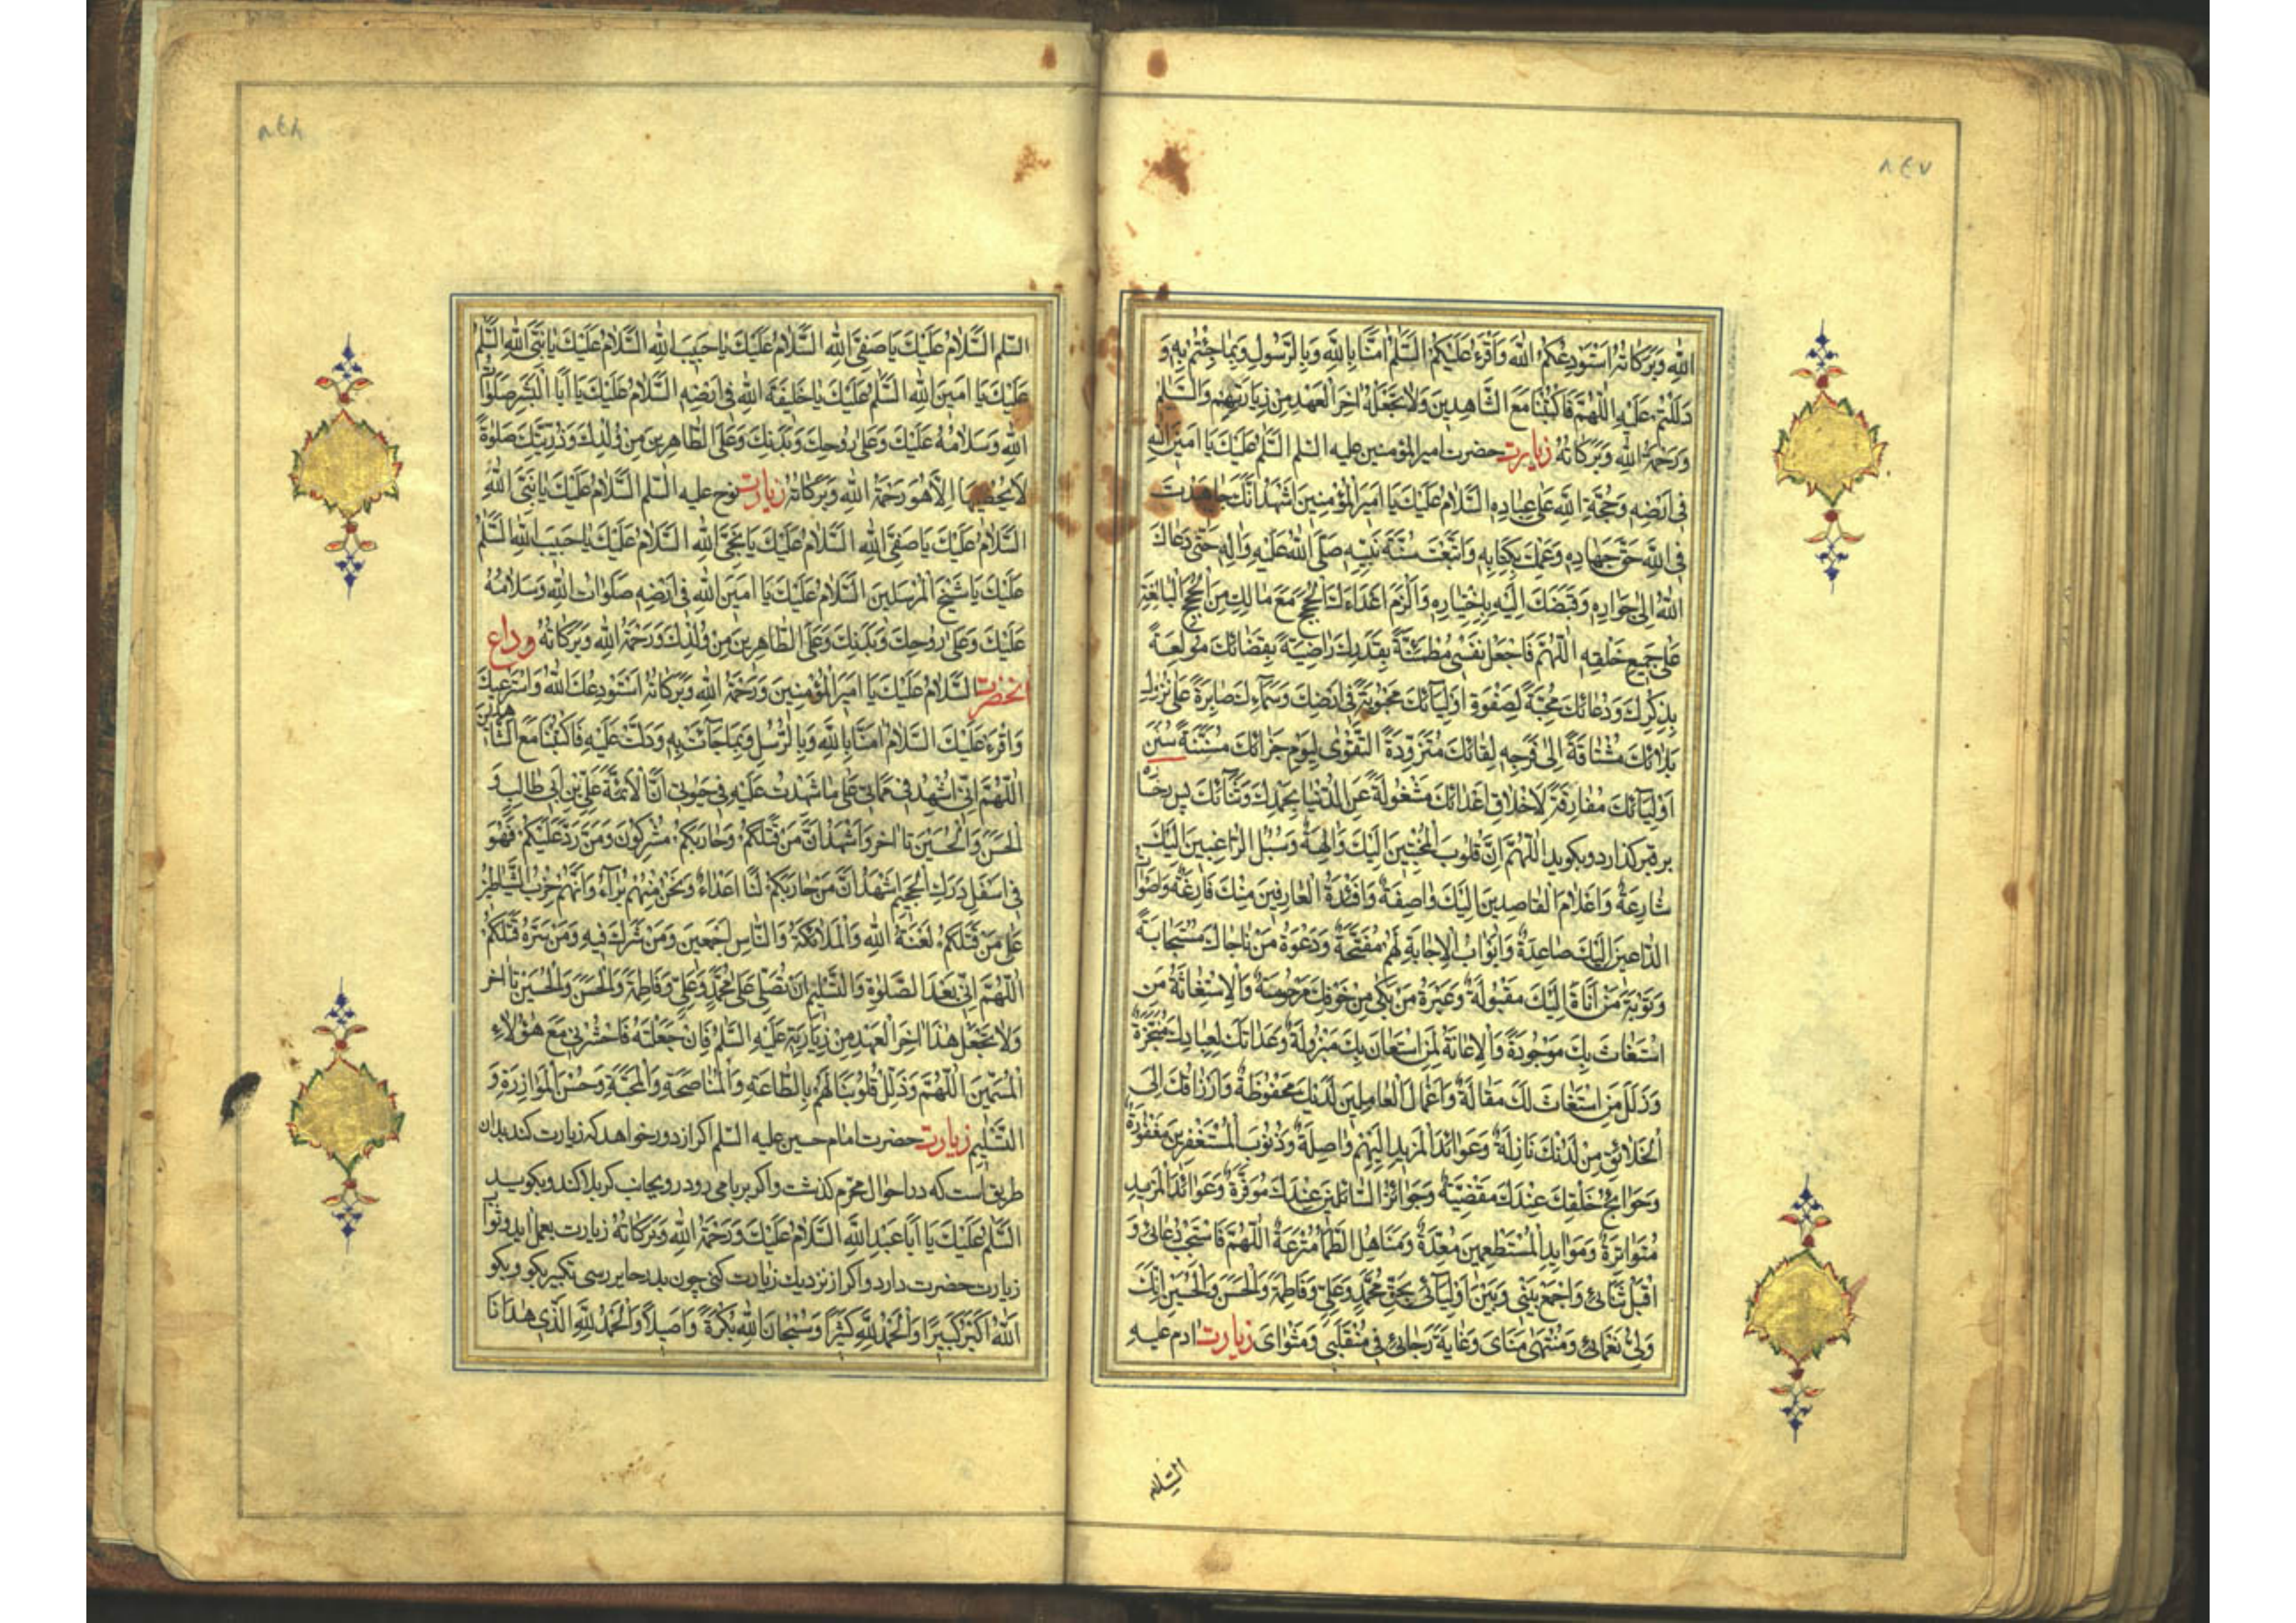 ٨٤٧
الله وَبَرَكاتُهُ اَسْتَوْدِعُكُمُ اللهَ وَاَقْرَءُ عَلَيْكُمُ السَّلٰمَ امَنّا بِاللهِ وَبِالرَّسُولِ وَبِما جِئْتُمْ بِهِ وَ
دَلَلْتُمْ عَلَيْهِ اَللّٰهُمَّ فَاكْتُبْنا مَعَ الشّاهِدينَ وَلا تَجْعَلْهُ اخِرَ الْعَهْدِ مِنْ زِيارَتِهِمْ وَالسَّلٰمُ
وَرَحْمَةُ اللهِ وَبَرَكاتُهُ زيارت حضرت امير المؤمنين عليه السلم السَّلٰمُ عَلَيْكَ يا اَمينَ اللهِ
فى اَرْضِهِ وَحُجَّةَ اللهِ عَلى عِبادِهِ السَّلامُ عَلَيْكَ يا اَميرَ الْمُؤْمِنينَ اَشْهَدُ اَنَّكَ جاهَدْتَ
فِى اللهِ حَقَّ جِهادِهِ وَعَمِلْتَ بِكِتابِهِ وَاتَّبَعْتَ سُنَّةَ نَبِيِّهِ صَلَّى اللهُ عَلَيْهِ وَالِهِ حَتّى دَعاكَ
اللهُ اِلى جِوارِهِ وَقَبَضَكَ اِلَيْهِ بِاِخْتِيارِهِ وَاَلْزَمَ اَعْداءَكَ الْحُجَّةَ مَعَ مالَكَ مِنَ الْحُجَجِ الْبالِغَةِ
عَلى جَميعِ خَلْقِهِ اَللّٰهُمَّ فَاجْعَلْ نَفْسى مُطْمَئِنَّةً بِقَدَرِكَ راضِيَةً بِقَضائِكَ مُولَعَةً
بِذِكْرِكَ وَدُعائِكَ مُحِبَّةً لِصَفْوَةِ اَوْلِيائِكَ مَحْبُوبَةً فى اَرْضِكَ وَسَماءِكَ صابِرَةً عَلى نُزُولِ
بَلائِكَ مُشْتاقَةً اِلى فَرْحِهِ لِقائِكَ مُتَزَوِّدَةً التَّقْوى لِيَوْمِ جَزائِكَ مُسْتَنَّةً سُنَنَ
اَوْلِيائِكَ مُفارِقَةً لِاَخْلاقِ اَعْدائِكَ مَشْغُولَةً عَنِ الدُّنْيا بِحَمْدِكَ وَثَنائِكَ پس رخ را
بر قبر گذارد و بگويد اَللّٰهُمَّ اِنَّ قُلُوبَ الْمُخْبِتينَ اِلَيْكَ والِهَةٌ وَسُبُلَ الرّاغِبينَ اِلَيْكَ
شارِعَةٌ وَاَعْلامَ الْقاصِدينَ اِلَيْكَ واضِحَةٌ وَاَفْئِدَةَ الْعارِفينَ مِنْكَ فازِعَةٌ وَاَصْواتَ
الدّاعينَ اِلَيْكَ صاعِدَةٌ وَاَبْوابَ الْاِجابَةِ لَهُمْ مُفَتَّحَةٌ وَدَعْوَةَ مَنْ ناجاكَ مُسْتَجابَةٌ
وَتَوْبَةَ مَنْ اَنابَ اِلَيْكَ مَقْبُولَةٌ وَعَبْرَةَ مَنْ بَكى مِنْ خَوْفِكَ مَرْحُومَةٌ وَالْاِسْتِغاثَةَ مَنِ
اسْتَغاثَ بِكَ مَوْجُودَةٌ وَالْاِعانَةَ لِمَنِ اسْتَعانَ بِكَ مَبْذُولَةٌ وَعِداتَكَ لِعِبادِكَ مُنْجَزَةٌ
وَزَلَلَ مَنِ اسْتَغاثَ لَكَ مُقالَةٌ وَاَعْمالَ الْعامِلينَ لَدَيْكَ مَحْفُوظَةٌ وَاَرْزاقَكَ اِلَى
الْخَلائِقِ مِنْ لَدُنْكَ نازِلَةٌ وَعَوائِدَ الْمَزيدِ اِلَيْهِمْ واصِلَةٌ وَذُنُوبَ الْمُسْتَغْفِرينَ مَغْفُورَةٌ
وَحَوائِجَ خَلْقِكَ عِنْدَكَ مَقْضِيَّةٌ وَجَوائِزَ السّائِلينَ عِنْدَكَ مُوَفَّرَةٌ وَعَوائِدَ الْمَزيدِ
مُتَواتِرَةٌ وَمَوايِدَ الْمُسْتَطْعِمينَ مُعَدَّةٌ وَمَناهِلَ الظَّمآءِ مُتْرَعَةٌ اَللّٰهُمَّ فَاسْتَجِبْ دُعائى وَ
اقْبَلْ ثَنائى وَاجْمَعْ بَيْنى وَبَيْنَ اَوْلِيائى بِحَقِّ مُحَمَّدٍ وَعَلِيٍّ وَفاطِمَةَ وَالْحَسَنِ وَالْحُسَيْنِ اِنَّكَ
وَلِىُّ نَعْمائى وَمُنْتَهى مُناىَ وَغايَةُ رَجائى فى مُنْقَلَبى وَمَثْواىَ زيارت ادم عليه
السلام
٨٤٨
السّلم السَّلامُ عَلَيْكَ يا صَفِىَّ اللهِ السَّلامُ عَلَيْكَ يا حَبيبَ اللهِ السَّلامُ عَلَيْكَ يا نَبِىَّ اللهِ السَّلٰمُ
عَلَيْكَ يا اَمينَ اللهِ السَّلٰمُ عَلَيْكَ يا خَليفَةَ اللهِ فى اَرْضِهِ السَّلامُ عَلَيْكَ يا اَبَا الْبَشَرِ صَلَواتُ
اللهِ وَسَلامُهُ عَلَيْكَ وَعَلى رُوحِكَ وَبَدَنِكَ وَعَلَى الطّاهِرينَ مِنْ وُلْدِكَ وَذُرِّيَّتِكَ صَلٰوةً
لا يُحْصيها اِلّا هُوَ وَرَحْمَةُ اللهِ وَبَرَكاتُهُ زيارت نوح عليه السّلم السَّلامُ عَلَيْكَ يا نَبِىَّ اللهِ
السَّلامُ عَلَيْكَ يا صَفِىَّ اللهِ السَّلامُ عَلَيْكَ يا نَجِىَّ اللهِ السَّلامُ عَلَيْكَ يا حَبيبَ اللهِ السَّلٰمُ
عَلَيْكَ يا شَيْخَ الْمُرْسَلينَ السَّلامُ عَلَيْكَ يا اَمينَ اللهِ فى اَرْضِهِ صَلَواتُ اللهِ وَسَلامُهُ
عَلَيْكَ وَعَلى رُوحِكَ وَبَدَنِكَ وَعَلَى الطّاهِرينَ مِنْ وُلْدِكَ وَرَحْمَةُ اللهِ وَبَرَكاتُهُ وداع
انحضرت السَّلامُ عَلَيْكَ يا اَميرَ الْمُؤْمِنينَ وَرَحْمَةُ اللهِ وَبَرَكاتُهُ اَسْتَوْدِعُكَ اللهَ وَاَسْتَرْعيكَ
وَاَقْرَءُ عَلَيْكَ السَّلامَ امَنّا بِاللهِ وَبِالرُّسُلِ وَبِما جائَتْ بِهِ وَدَلَّتْ عَلَيْهِ فَاكْتُبْنا مَعَ الشّاهدين
اَللّٰهُمَّ اِنّى اَشْهَدُ فى مَماتى عَلى ما شَهِدْتُ عَلَيْهِ فى حَيٰوتى اَنَّ الْاَئِمَّةَ عَلِىِّ بْنِ اَبى طالِبٍ وَ
الْحَسَنَ وَالْحُسَيْنَ تا اخر وَاَشْهَدُ اَنَّ مَنْ قَتَلَكُمْ وَحارَبَكُمْ مُشْرِكُونَ وَمَنْ رَدَّ عَلَيْكُمْ فَهُوَ
فى اَسْفَلِ دَرَكِ الْجَحيمِ اَشْهَدُ اَنَّ مَنْ حارَبَكُمْ لَنا اَعْداءٌ وَنَحْنُ مِنْهُمْ بُرَآءُ وَاَنَّهُمْ حِزْبُ الشَّيْطانِ
عَلى مَنْ قَتَلَكُمْ لَعْنَةُ اللهِ وَالْمَلائِكَةِ وَالنّاسِ اَجْمَعينَ وَمَنْ شَرِكَ فيهِ وَمَنْ سَرَّهُ قَتْلُكُمْ
اَللّٰهُمَّ اِنّى بَعْدَ الصَّلٰوةِ وَالتَّسْليمِ اَنْ تُصَلِّىَ عَلى مُحَمَّدٍ وَعَلِىٍّ وَفاطِمَةَ وَالْحَسَنِ وَالْحُسَيْنِ تا اخر
وَلا تَجْعَلْ هٰذا اخِرَ الْعَهْدِ مِنْ زِيارَتِهِ عَلَيْهِ السَّلٰمُ فَاِنْ جَعَلْتَهُ فَاحْشُرْنى مَعَ هٰؤُلاءِ
الْمُسَمَّينَ اَللّٰهُمَّ وَذَلِّلْ قُلُوبَنا لَهُمْ بِالطّاعَةِ وَالْمُناصَحَةِ وَالْمَحَبَّةِ وَحُسْنِ الْمُوازَرَةِ وَ
التَّسْليمِ زيارت حضرت امام حسين عليه السّلم اكر از دور خواهد كه زيارت كند بدان
طريق است كه در احوال محرّم كذشت واكر بر بامى رود و رو بجانب كربلا كند و بكويد
السَّلٰمُ عَلَيْكَ يا اَبا عَبْدِ اللهِ السَّلامُ عَلَيْكَ وَرَحْمَةُ اللهِ وَبَرَكاتُهُ زيارت بعمل ايد و ثواب
زيارت حضرت دارد و اكر از نزديك زيارت كنى چون بدر حاير رسى تكبير بكو و بكو
اَللهُ اَكْبَرُ كَبيرًا وَالْحَمْدُ لِلّٰهِ كَثيرًا وَسُبْحانَ اللهِ بُكْرَةً وَاَصيلًا وَالْحَمْدُ لِلّٰهِ الَّذى هَدانا